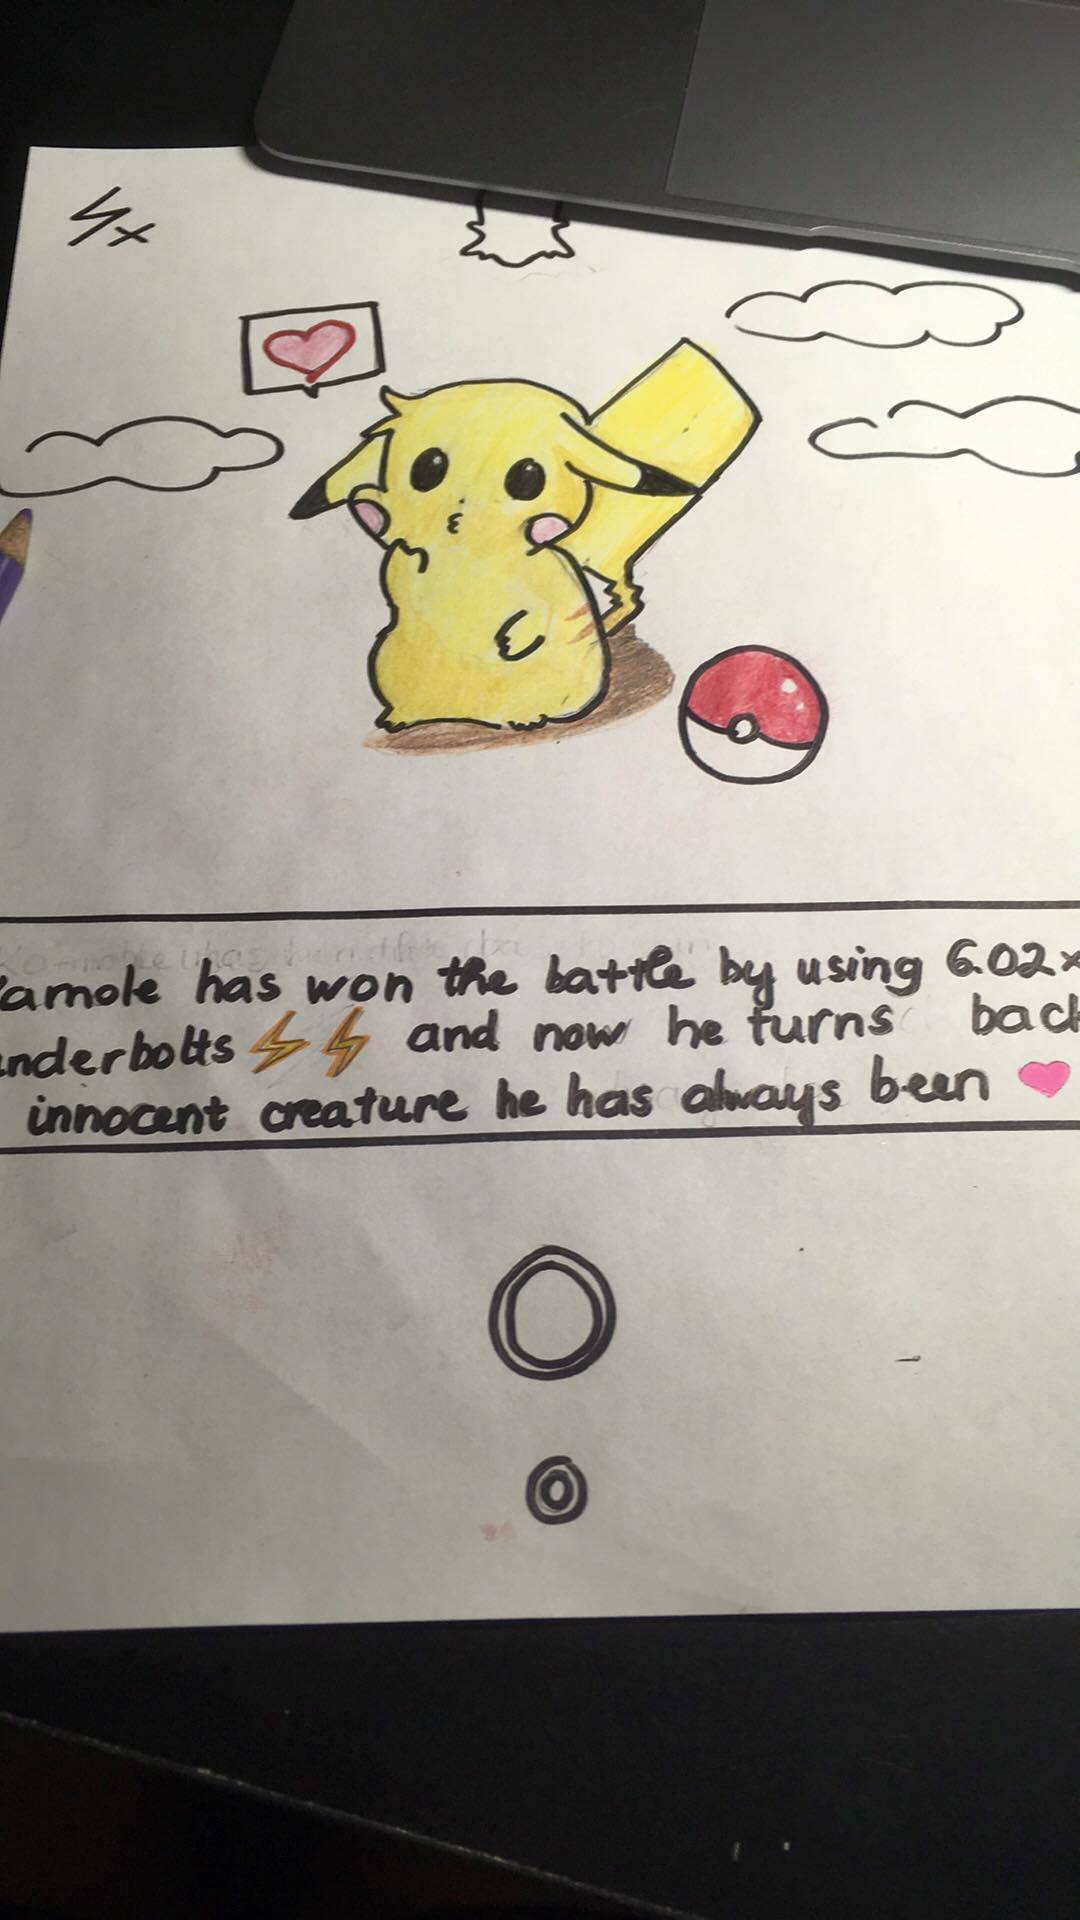 amole has won the battle by using 6.02x
nderbolts ⚡⚡ and now he turns back
innocent creature he has always been